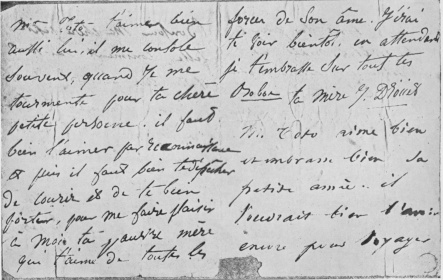 Mr Toto t'aime bien
aussi lui, il me console
souvent, quand je me
tourmente pour ta chère
petite personne. il faut
bien l'aimer par reconnaissance
et puis il faut bien te dépêcher
de courir et de te bien
porter, pour me faire plaisir
à moi, ta pauvre mère
qui t'aime de toutes les
forces de son âme. J'irai
te voir bientôt, en attendant
je t'embrasse sur tout tes
ta mère J. Drouet
Mr Toto aime bien
et embrasse bien sa
petite amie. il
voudrait bien l'avoir
encore pour voyager